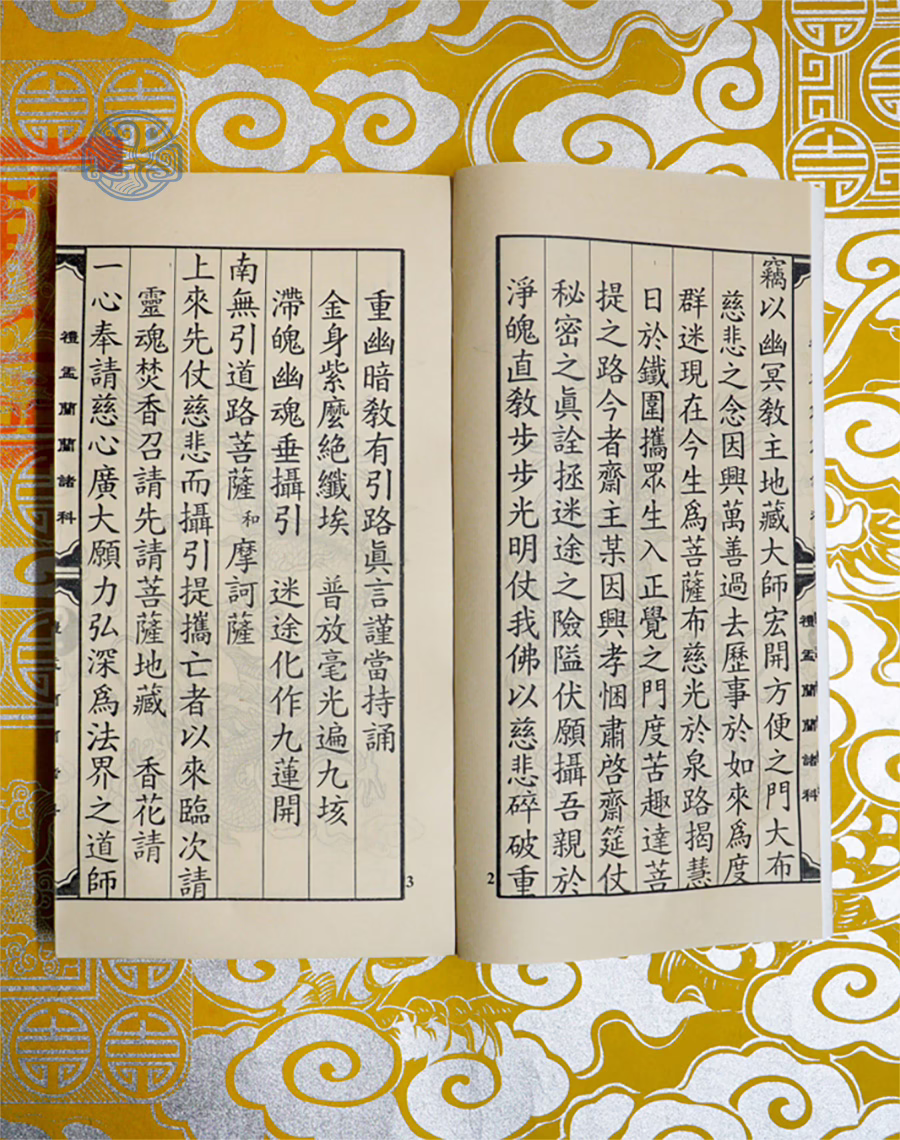 竊以幽冥敎主地藏大師宏開方便之門大布
慈悲之念因興萬善過去歷事於如來爲度
群迷現在今生爲菩薩布慈光於泉路揭慧
日於鐵圍攜眾生入正覺之門度苦趣達菩
提之路今者齋主某因興孝悃肅啓齋筵仗
秘密之眞詮拯迷途之險隘伏願攝吾親於
淨魄直敎步步光明仗我佛以慈悲碎破重
禮盂蘭蘭諸科
2
重幽暗敎有引路眞言謹當持誦
金身紫麽絕纖埃 普放毫光遍九垓
滯魄幽魂垂攝引 迷途化作九蓮開
南無引道路菩薩和摩訶薩
上來先仗慈悲而攝引提攜亡者以來臨次請
靈魂焚香召請先請菩薩地藏 香花請
一心奉請慈心廣大願力弘深爲法界之道師
禮盂蘭蘭諸科
3